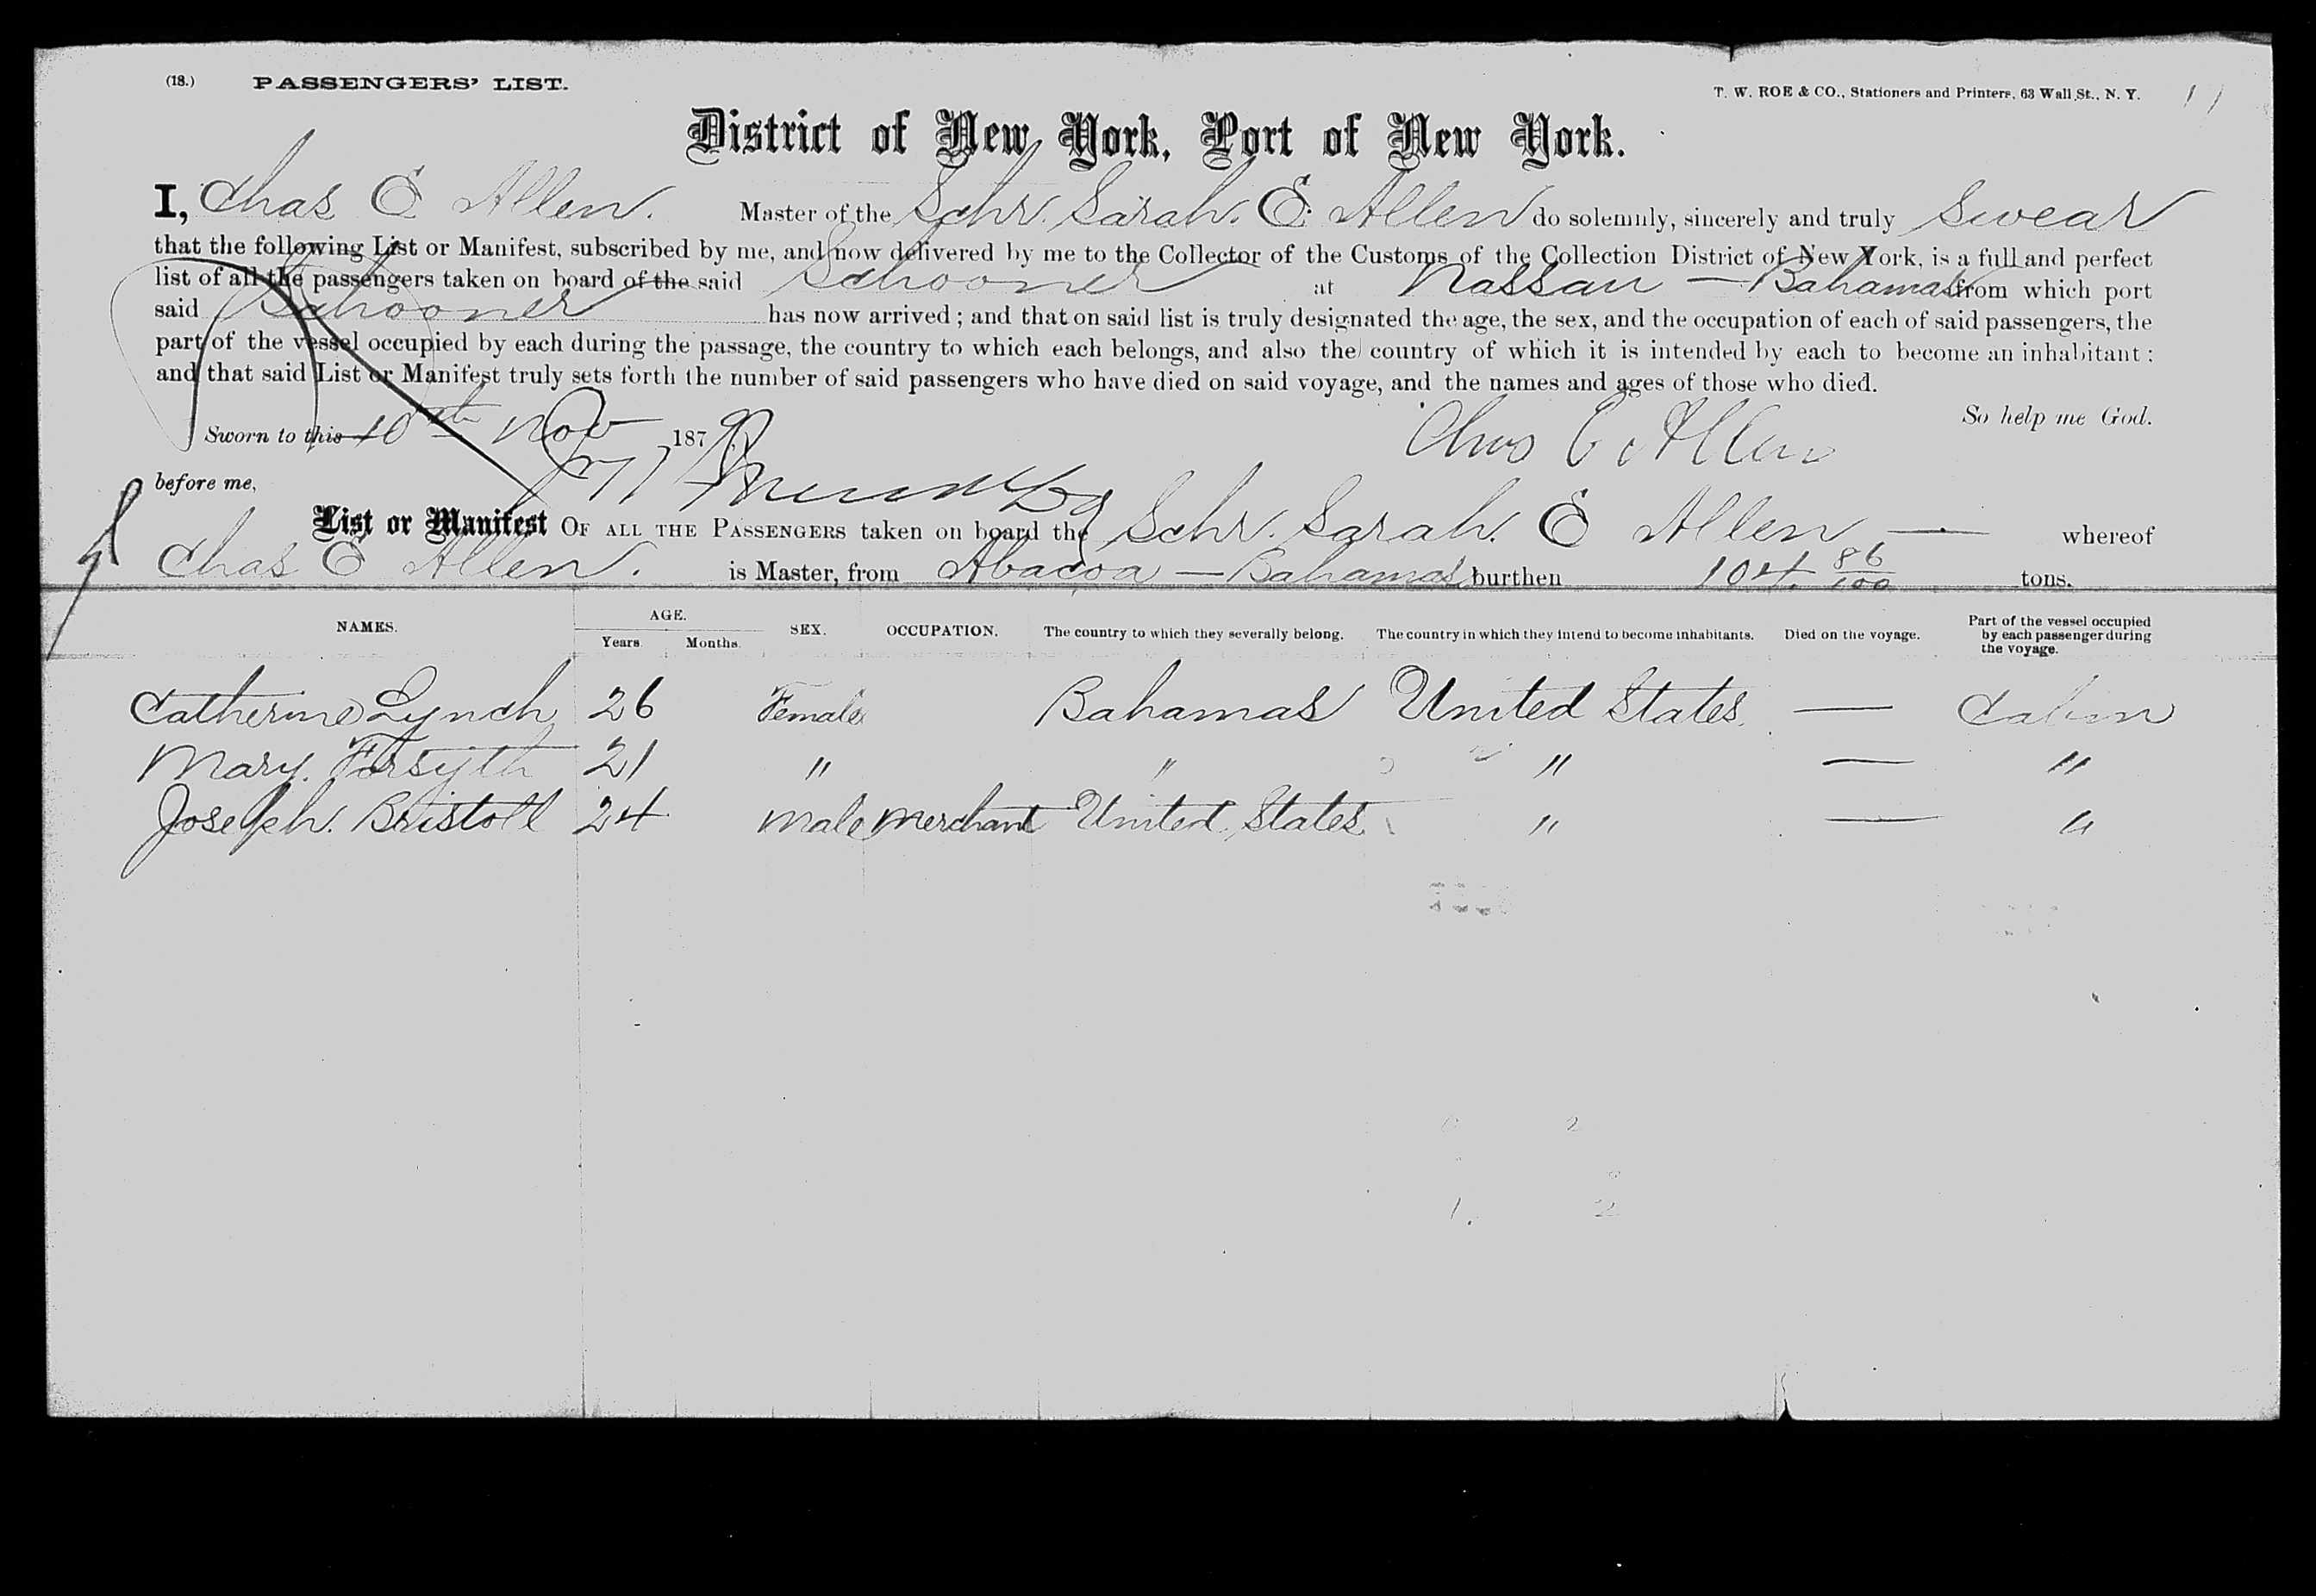 (18.) PASSENGERS' LIST. T. W. ROE & CO., Stationers and Printers, 63 Wall St., N. Y.
District of New York, Port of New York.
I, Chas E Allen. Master of the Schr. Sarah. E. Allen do solemnly, sincerely and truly swear
that the following List or Manifest, subscribed by me, and now delivered by me to the Collector of the Customs of the Collection District of New York, is a full and perfect
list of all the passengers taken on board of the said Schooner at Nassau — Bahamas from which port
said Schooner has now arrived; and that on said list is truly designated the age, the sex, and the occupation of each of said passengers, the
part of the vessel occupied by each during the passage, the country to which each belongs, and also the country of which it is intended by each to become an inhabitant:
and that said List or Manifest truly sets forth the number of said passengers who have died on said voyage, and the names and ages of those who died.
So help me God.
Sworn to this 10th Nov 1879 Chas E. Allen
before me,
List or Manifest OF ALL THE PASSENGERS taken on board the Schr. Sarah. E Allen — whereof
Chas E Allen. is Master, from Abacoa — Bahamas burthen 104. 86/100 tons.
NAMES. AGE. Years. Months. SEX. OCCUPATION. The country to which they severally belong. The country in which they intend to become inhabitants. Died on the voyage. Part of the vessel occupied by each passenger during the voyage.
Catherine Lynch 26 Female Bahamas United States — Cabin
Mary. Forsyth 21 " " " — "
Joseph. Bristoll 24 Male Merchant United States " — "
1. 2